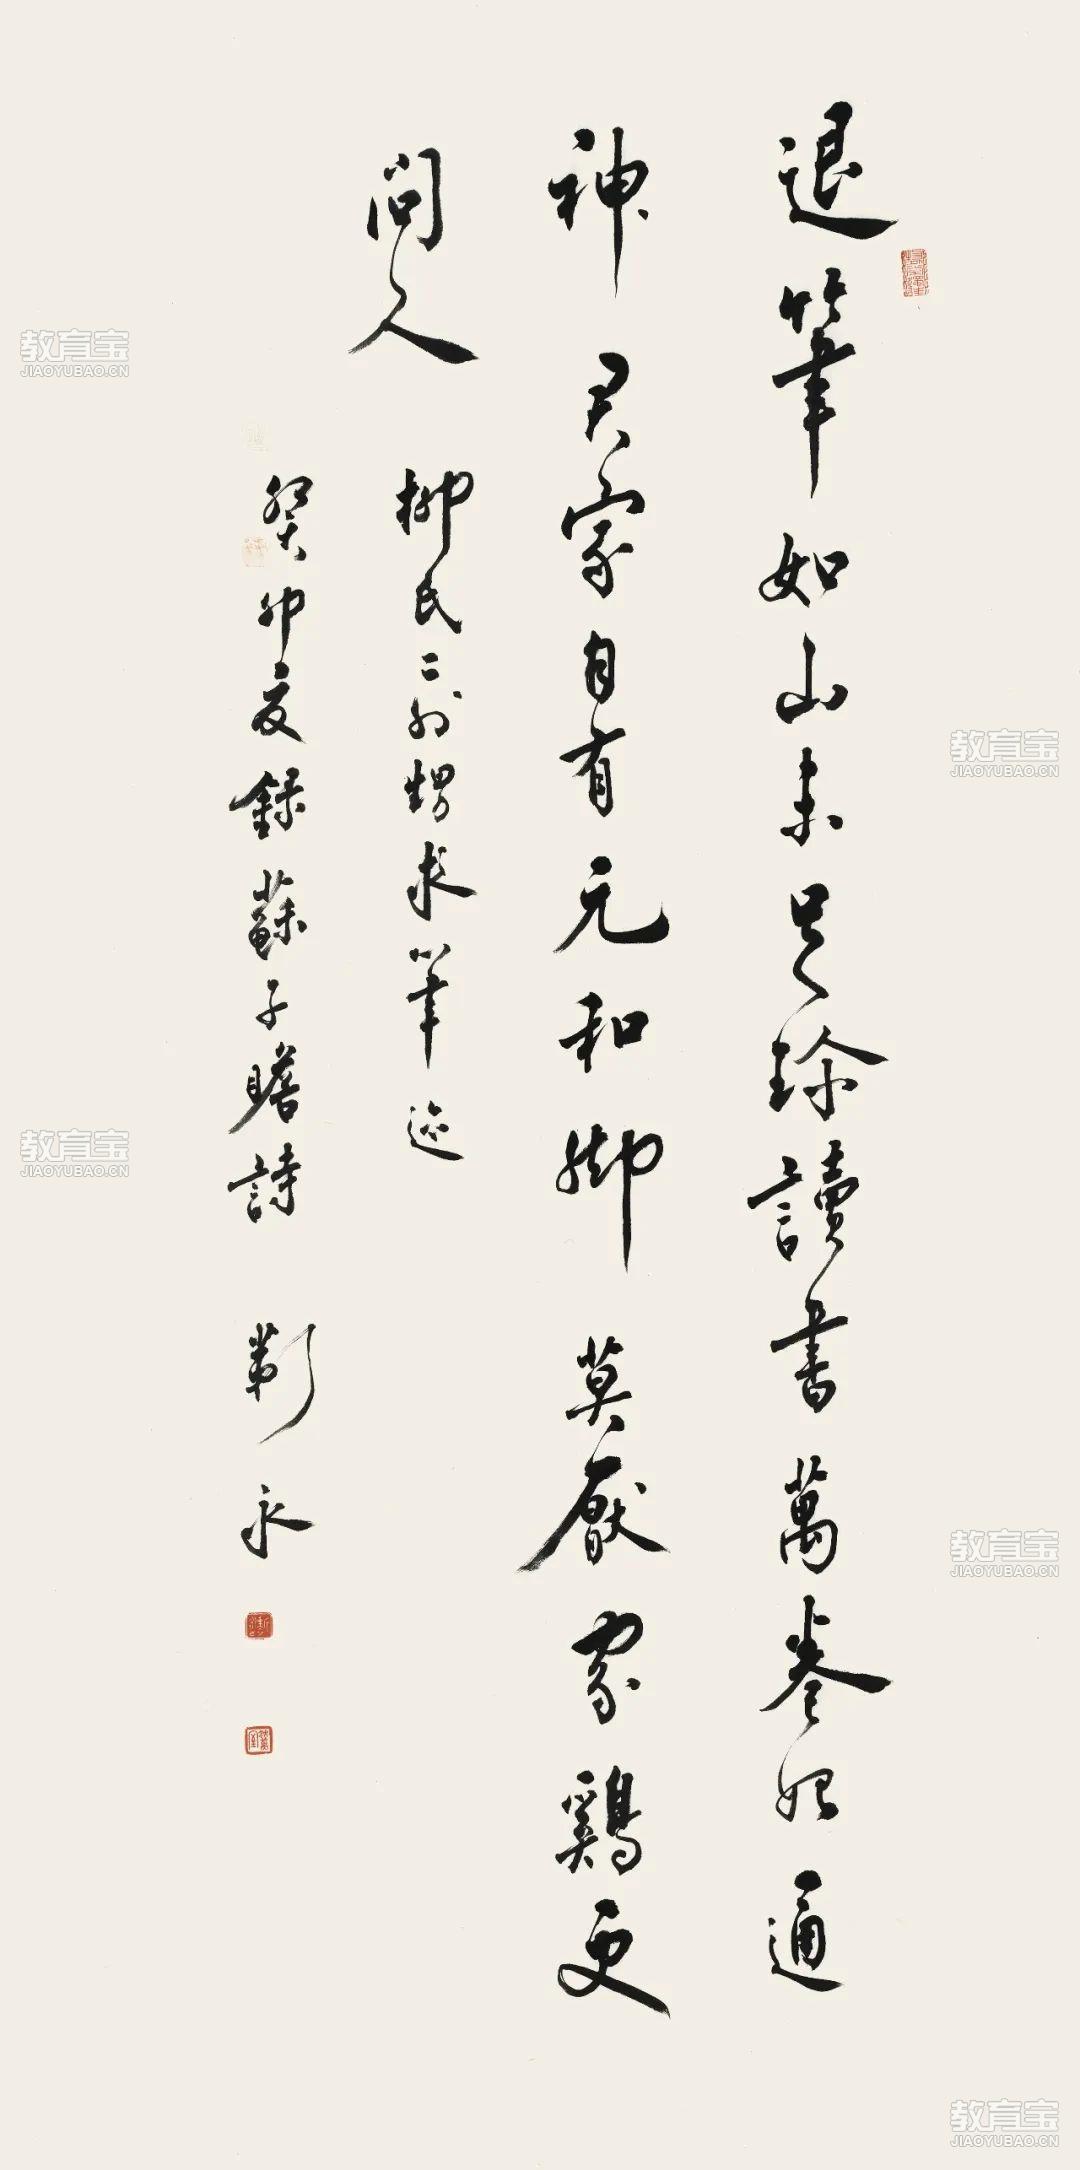 退筆如山未足珍讀書萬卷始通
神君家自有元和脚莫厭家鷄更
問人
柳氏二外甥求筆迹
癸卯夏錄蘇子瞻詩 靳永
教育宝
JIAOYUBAO.CN
教育宝
JIAOYUBAO.CN
教育宝
JIAOYUBAO.CN
教育宝
JIAOYUBAO.CN
教育宝
JIAOYUBAO.CN